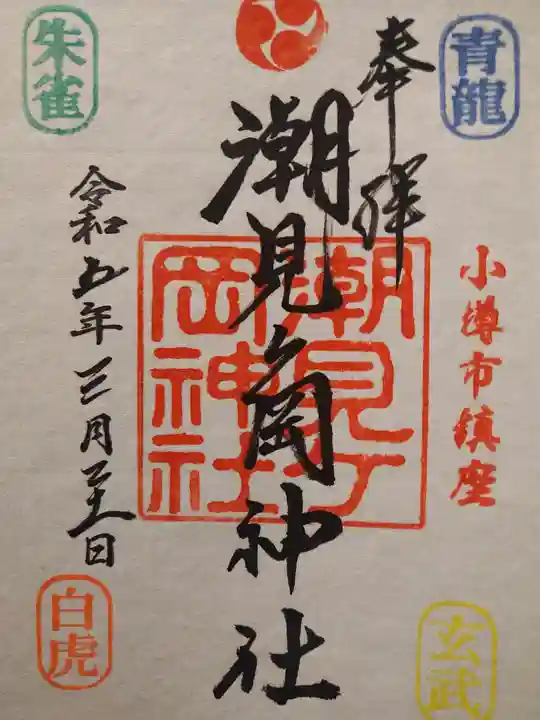 青龍
奉拝
小樽市鎮座
玄武
潮見ヶ岡神社
潮見ヶ
岡神社
朱雀
令和五年三月二十一日
白虎